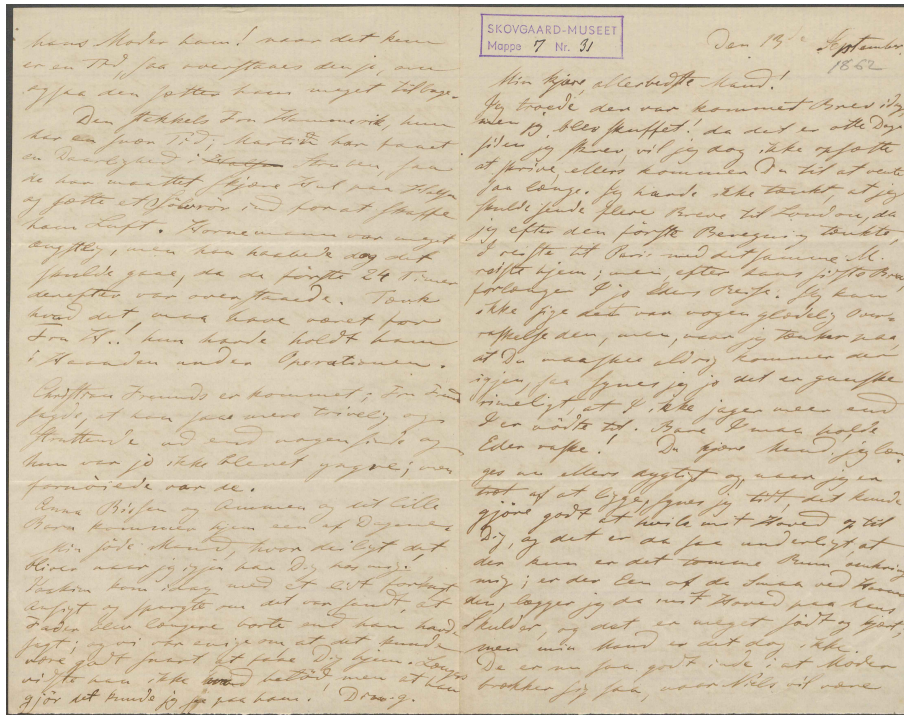 hans Moder ham! naar det kun
er en Tid, saa overstaaes den jo, men
ogsaa den sætter ham meget tilbage.
Den stakkels Fru Hammerik, hun
har en svær Tid; Martin har faaet
en Daarlighed i Struben, saa
de har maattet skjære Hul paa Halsen
og sætte et Sølvrør ind for at skaffe
ham Luft. Hornemann var meget
ængstlig, men han haabede dog det
skulde gaae, da de første 24 Timer
derefter var overstaaede. Tænk
hvad det maa have været for
Fru H.! hun havde holdt ham
i Haanden under Operationen.
Christian Freunds er kommet; Fru Freund
sagde, at han saae mere trivelig og
struttende ud end nogensinde og
hun var jo ikke blevet yngre; men
fornøiede var de.
Anna Bissen og Ammen og det lille
Barn kommer hjem een af Dagene.
Min søde Mand, hvor deiligt det
bliver naar jeg igjen har Dig hos mig.
Joakim kom idag med et lidt forknyt
Ansigt og spurgte om det var sandt at
Fader blev længere borte end han havde
sagt; og vi var enige om at det kunde
være godt snart at have Dig hjem. Længes
vidste han ikke hvad betød, men at han
gjør det kunde jeg see paa ham. Din

SKOVGAARD-MUSEET
Mappe 7 Nr. 31
Den 13de September
1862
Min kjære, allerbedste Mand!
Jeg troede der var kommet Brev idag
men jeg blev skuffet! da det er otte Dage
siden jeg skrev, vil jeg dog ikke opsætte
at skrive, ellers kommer Du til at vente
saa længe. Jeg havde ikke tænkt, at jeg
skulde sende flere Breve til London, da
jeg efter den første Beregning tænkte,
I reiste til Paris med det samme M.
reiste hjem; men, efter hans sidste Brev,
forlænger I jo Eders Reise. Jeg kan
ikke sige det var nogen glædelig Over-
raskelse den, men, naar jeg tænker paa,
at Du maaskee aldrig kommer der
igjen, saa synes jeg jo det er ganske
rimeligt, at I ikke jager meer end
I er nødte til. Bare I maa holde
Eder raske! Du kjære Mand, jeg læn-
ges nu ellers dygtigt og, naar jeg er
træt af at ligge, synes jeg tidt, det kunde
gjøre godt at hvile mit Hoved op til
Dig, og det er da saa underligt, at
der kun er det tomme Rum omkring
mig; er der Een af de Smaa ved Haan-
den, lægger jeg da mit Hoved paa hans
Skulder, og det er meget sødt og kjært,
men min Mand er det dog ikke.
De er nu saa godt inde i at Moder
trækker jeg paa, naar Niels vil være